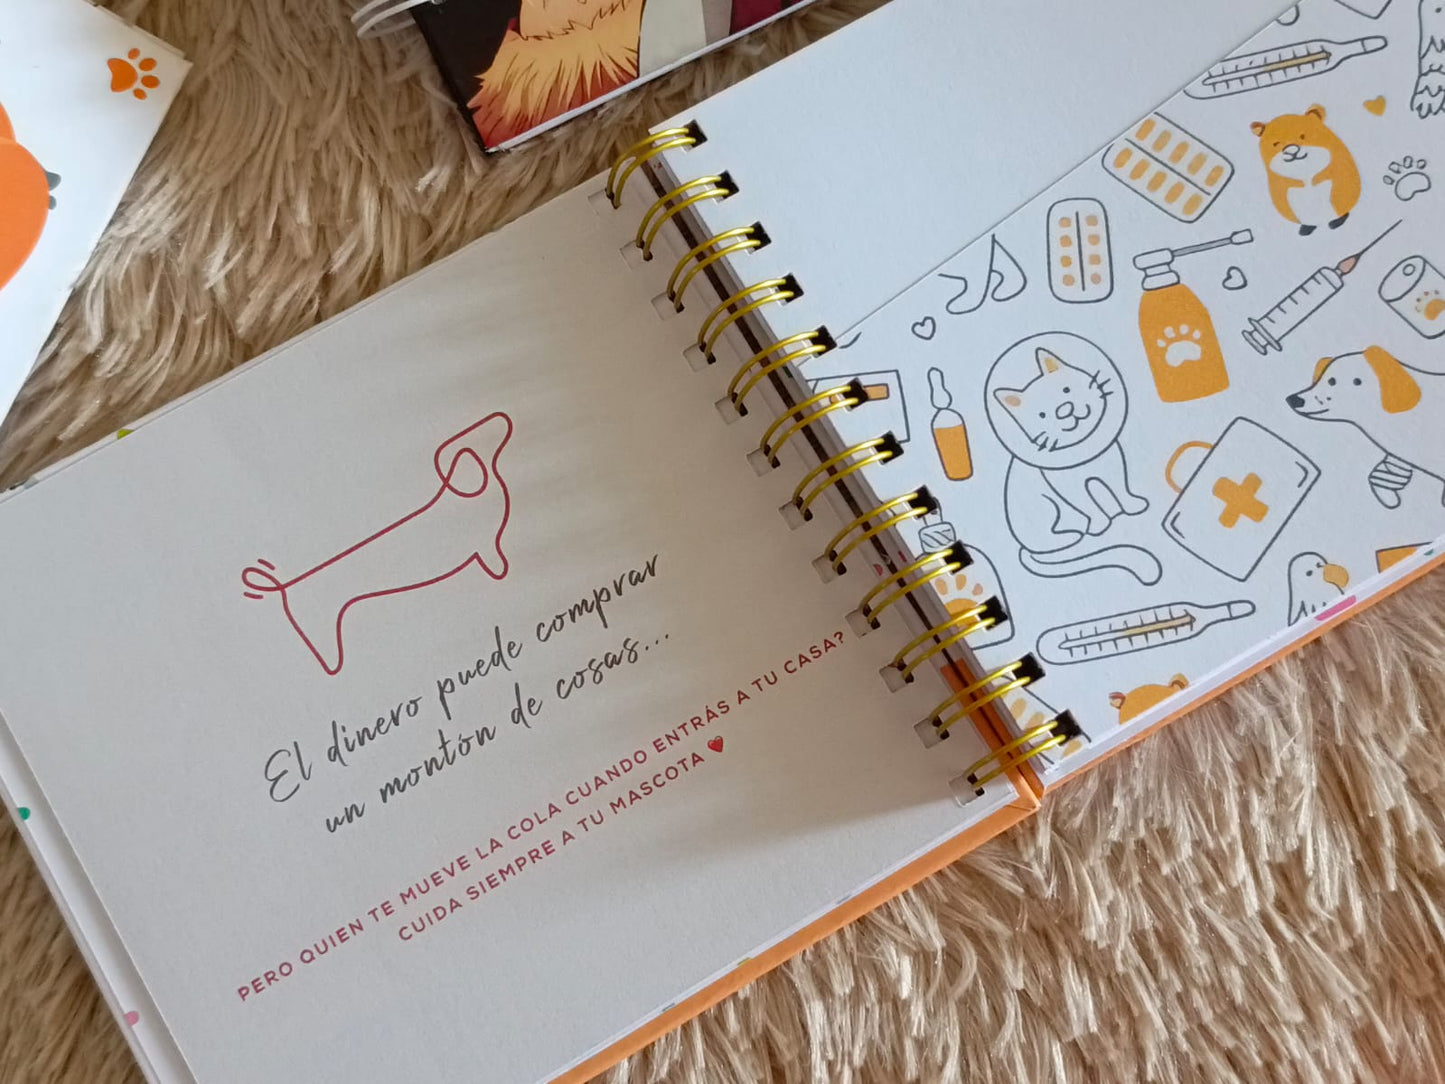 El dinero puede comprar
un montón de cosas...
PERO QUIEN TE MUEVE LA COLA CUANDO ENTRÁS A TU CASA?
CUIDA SIEMPRE A TU MASCOTA